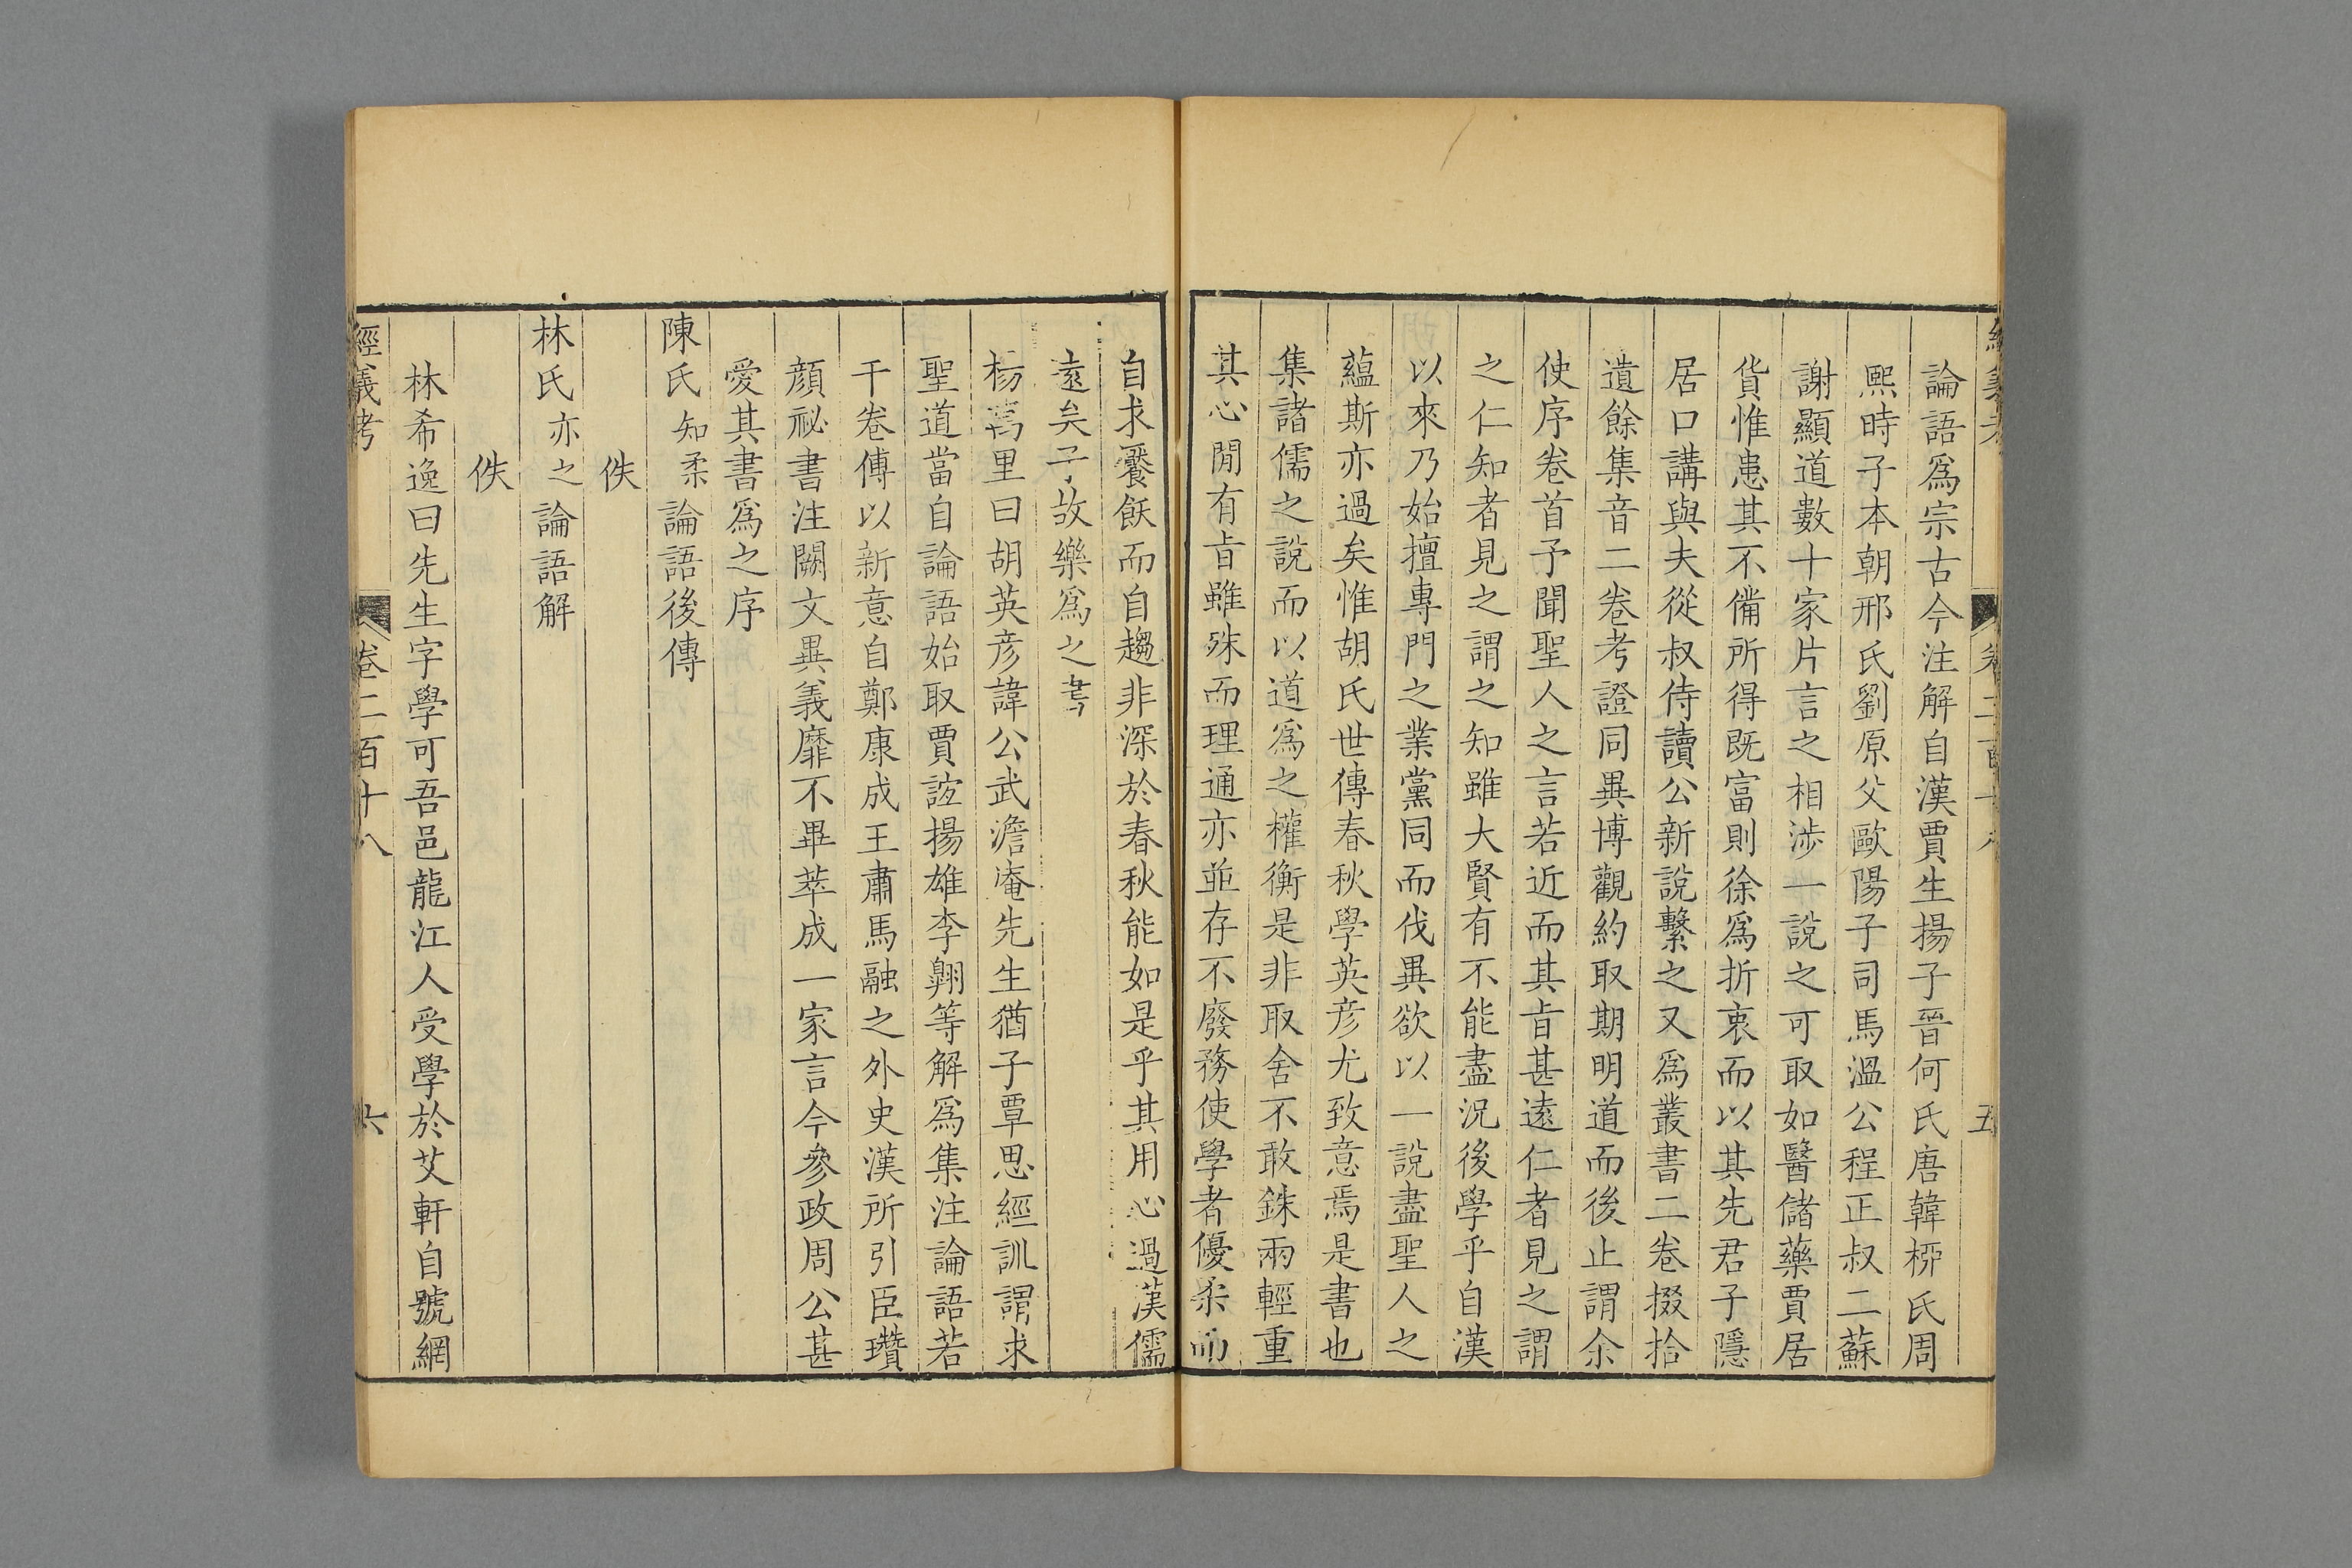 經義考 卷二百十八 五
論語爲宗古今注解自漢賈生揚子晉何氏唐韓栁氏周
熙時子本朝邢氏劉原父歐陽子司馬溫公程正叔二蘇
謝顯道數十家片言之相渉一說之可取如醫儲藥賈居
貨惟患其不備所得旣富則徐爲折衷而以其先君子隱
居口講與夫從叔侍讀公新說繫之又爲叢書二卷掇拾
遺餘集音二卷考證同異博觀約取期明道而後止謂余
使序卷首予聞聖人之言若近而其旨甚遠仁者見之謂
之仁知者見之謂之知雖大賢有不能盡況後學乎自漢
以來乃始擅專門之業黨同而伐異欲以一說盡聖人之
蘊斯亦過矣惟胡氏世傳春秋學英彦尤致意焉是書也
集諸儒之說而以道爲之權衡是非取舍不敢銖兩輕重
其心閒有旨雖殊而理通亦並存不廢務使學者優柔而
自求饜飫而自趨非深於春秋能如是乎其用心過漢儒
遠矣予故樂爲之書
楊萬里曰胡英彦諱公武澹庵先生猶子覃思經訓謂求
聖道當自論語始取賈誼揚雄李翺等解爲集注論語若
干卷傅以新意自鄭康成王肅馬融之外史漢所引臣瓚
顔祕書注闕文異義靡不畢萃成一家言今參政周公甚
愛其書爲之序
陳氏知柔論語後傳
佚
林氏亦之論語解
佚
林希逸曰先生字學可吾邑龍江人受學於艾軒自號網
經義考 卷二百十八 六